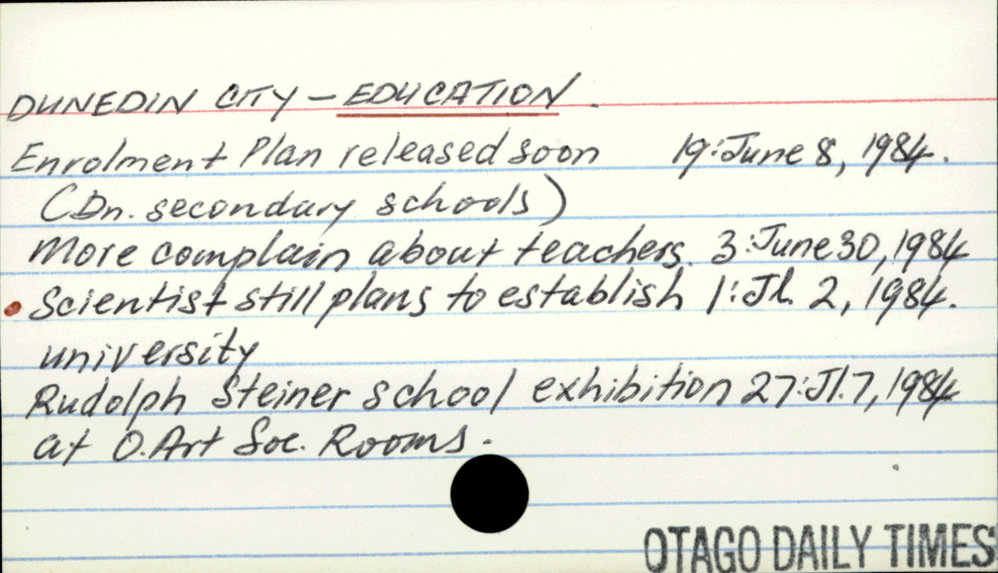 DUNEDIN CITY – EDUCATION.
Enrolment Plan released soon 19:June 8, 1984.
(Dn. secondary schools)
More complain about teachers. 3:June 30, 1984
Scientist still plans to establish 1:Jl. 2, 1984.
university
Rudolph Steiner school exhibition 27:Jl.7, 1984
at O.Art Soc. Rooms.
OTAGO DAILY TIMES